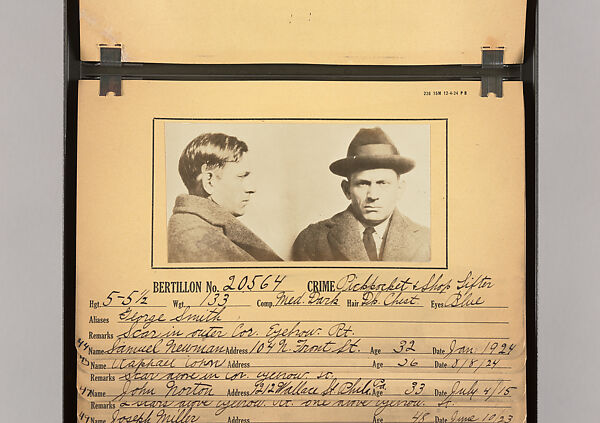 236 15M 12-4-24 P B
BERTILLON No. 20564 CRIME Pickpocket & Shop Lifter
Hgt. 5-5½ Wgt. 133 Comp. Med. Dark Hair Dk. Chest. Eyes Blue
Aliases George Smith
Remarks Scar in outer Cor. Eyebrow. Rt.
Name Samuel Newman Address 104 N. Front St. Age 32 Date Jan. 1924
Name Raphael Cohn Address Age 36 Date 3/8/24
Remarks Scar above in cor. eyebrow. rt.
Name John Norton Address 1212 Wallace St. Phila. Pa. Age 33 Date July 4/15
Remarks 2 scars above eyebrow. Rt. one above eyebrow.
Name Joseph Miller Address Age 48 Date June 10/23